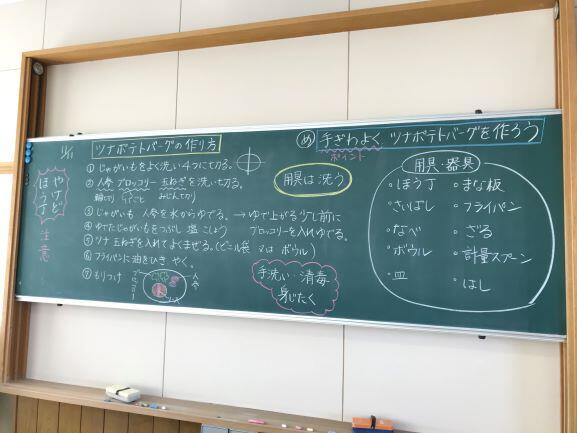 やけど
ほう丁
注意
ツナポテトバーグの作り方
①じゃがいもをよく洗い4つに切る。
②人参 ブロッコリー 玉ねぎを洗い切る。
輪切り 小ごと みじん切り
③じゃがいも 人参を水からゆでる。→ゆで上がる少し前に
ブロッコリーを入れゆでる。
④ゆでたじゃがいもをつぶし 塩 こしょう
⑤ツナ 玉ねぎを入れてよくまぜる。(ビニール袋 又は ボウル)
⑥フライパンに油をひき やく。
⑦もりつけ
人参
用具は洗う
手洗い・消毒
身じたく
め 手ぎわよく ツナポテトバーグを作ろう
ポイント
用具・器具
・ほう丁 ・まな板
・さいばし ・フライパン
・なべ ・ざる
・ボウル ・計量スプーン
・皿 ・はし